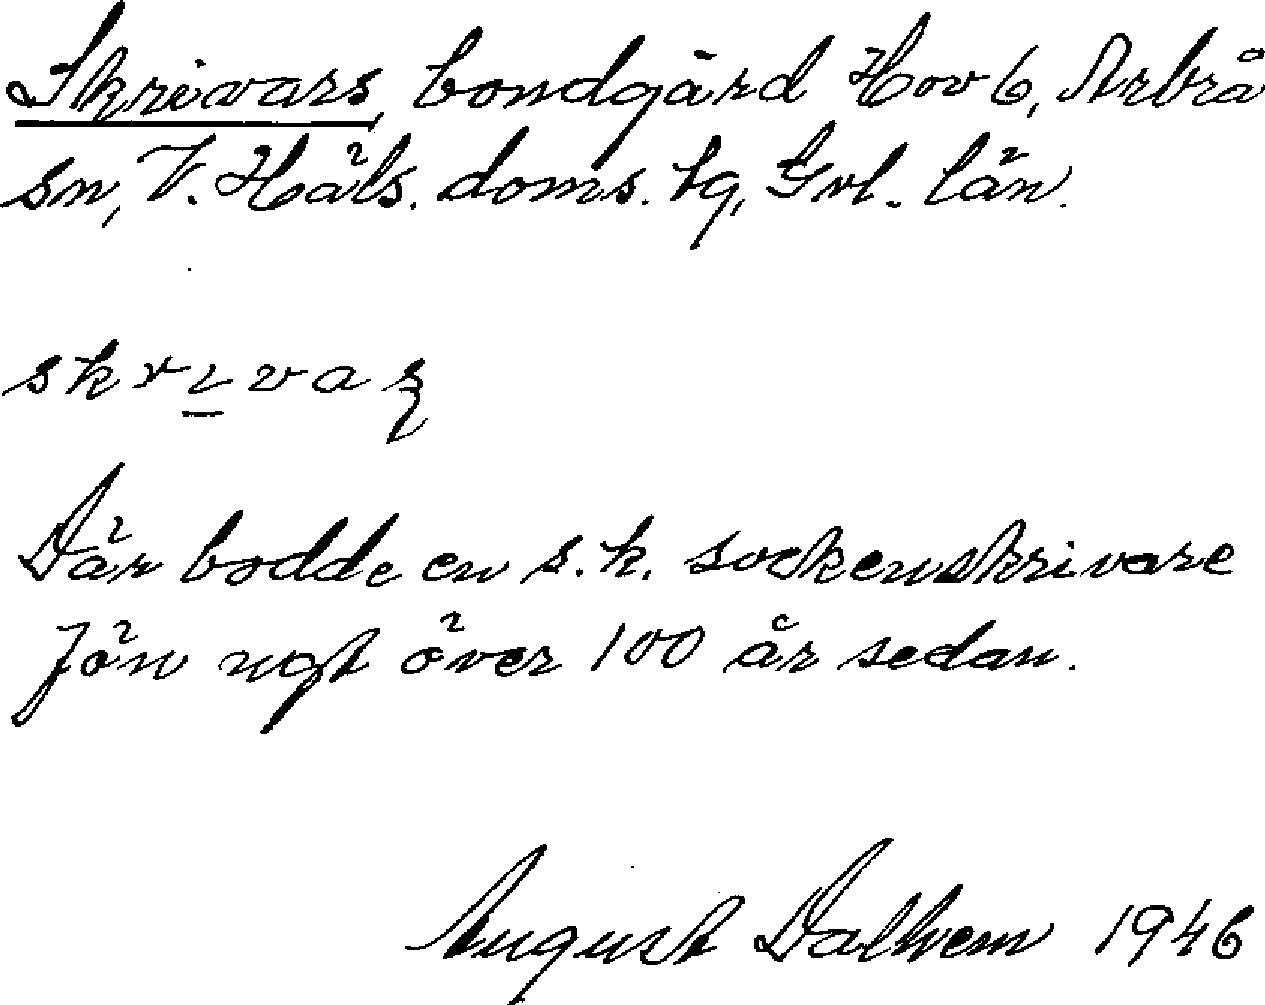 Skrivars, bondgård Hov 6, Arbrå
sn, V. Häls. doms. tg, Gvl. län.
skrivaʂ
Där bodde en s.k. sockenskrivare
Jön ngt över 100 år sedan.
August Dalhem 1946